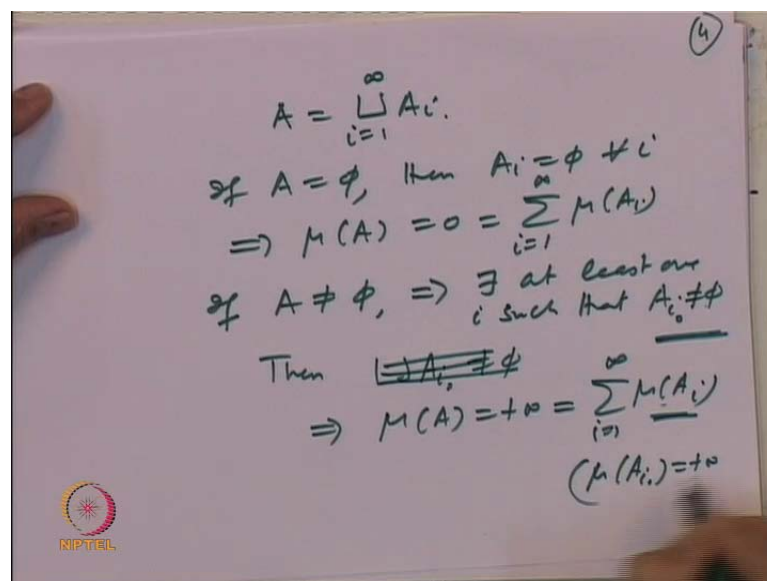 4
∞
A = ⊔ Ai.
i=1
If A = φ, then Ai = φ ∀ i
⇒ μ(A) = 0 = ∞∑i=1 μ(Ai)
If A ≠ φ, ⇒ ∃ at least one
i such that Ai₀ ≠ φ
Then
⇒ μ(A) = +∞ = ∞∑i=1 μ(Ai)
(μ(Ai₀) = +∞
NPTEL